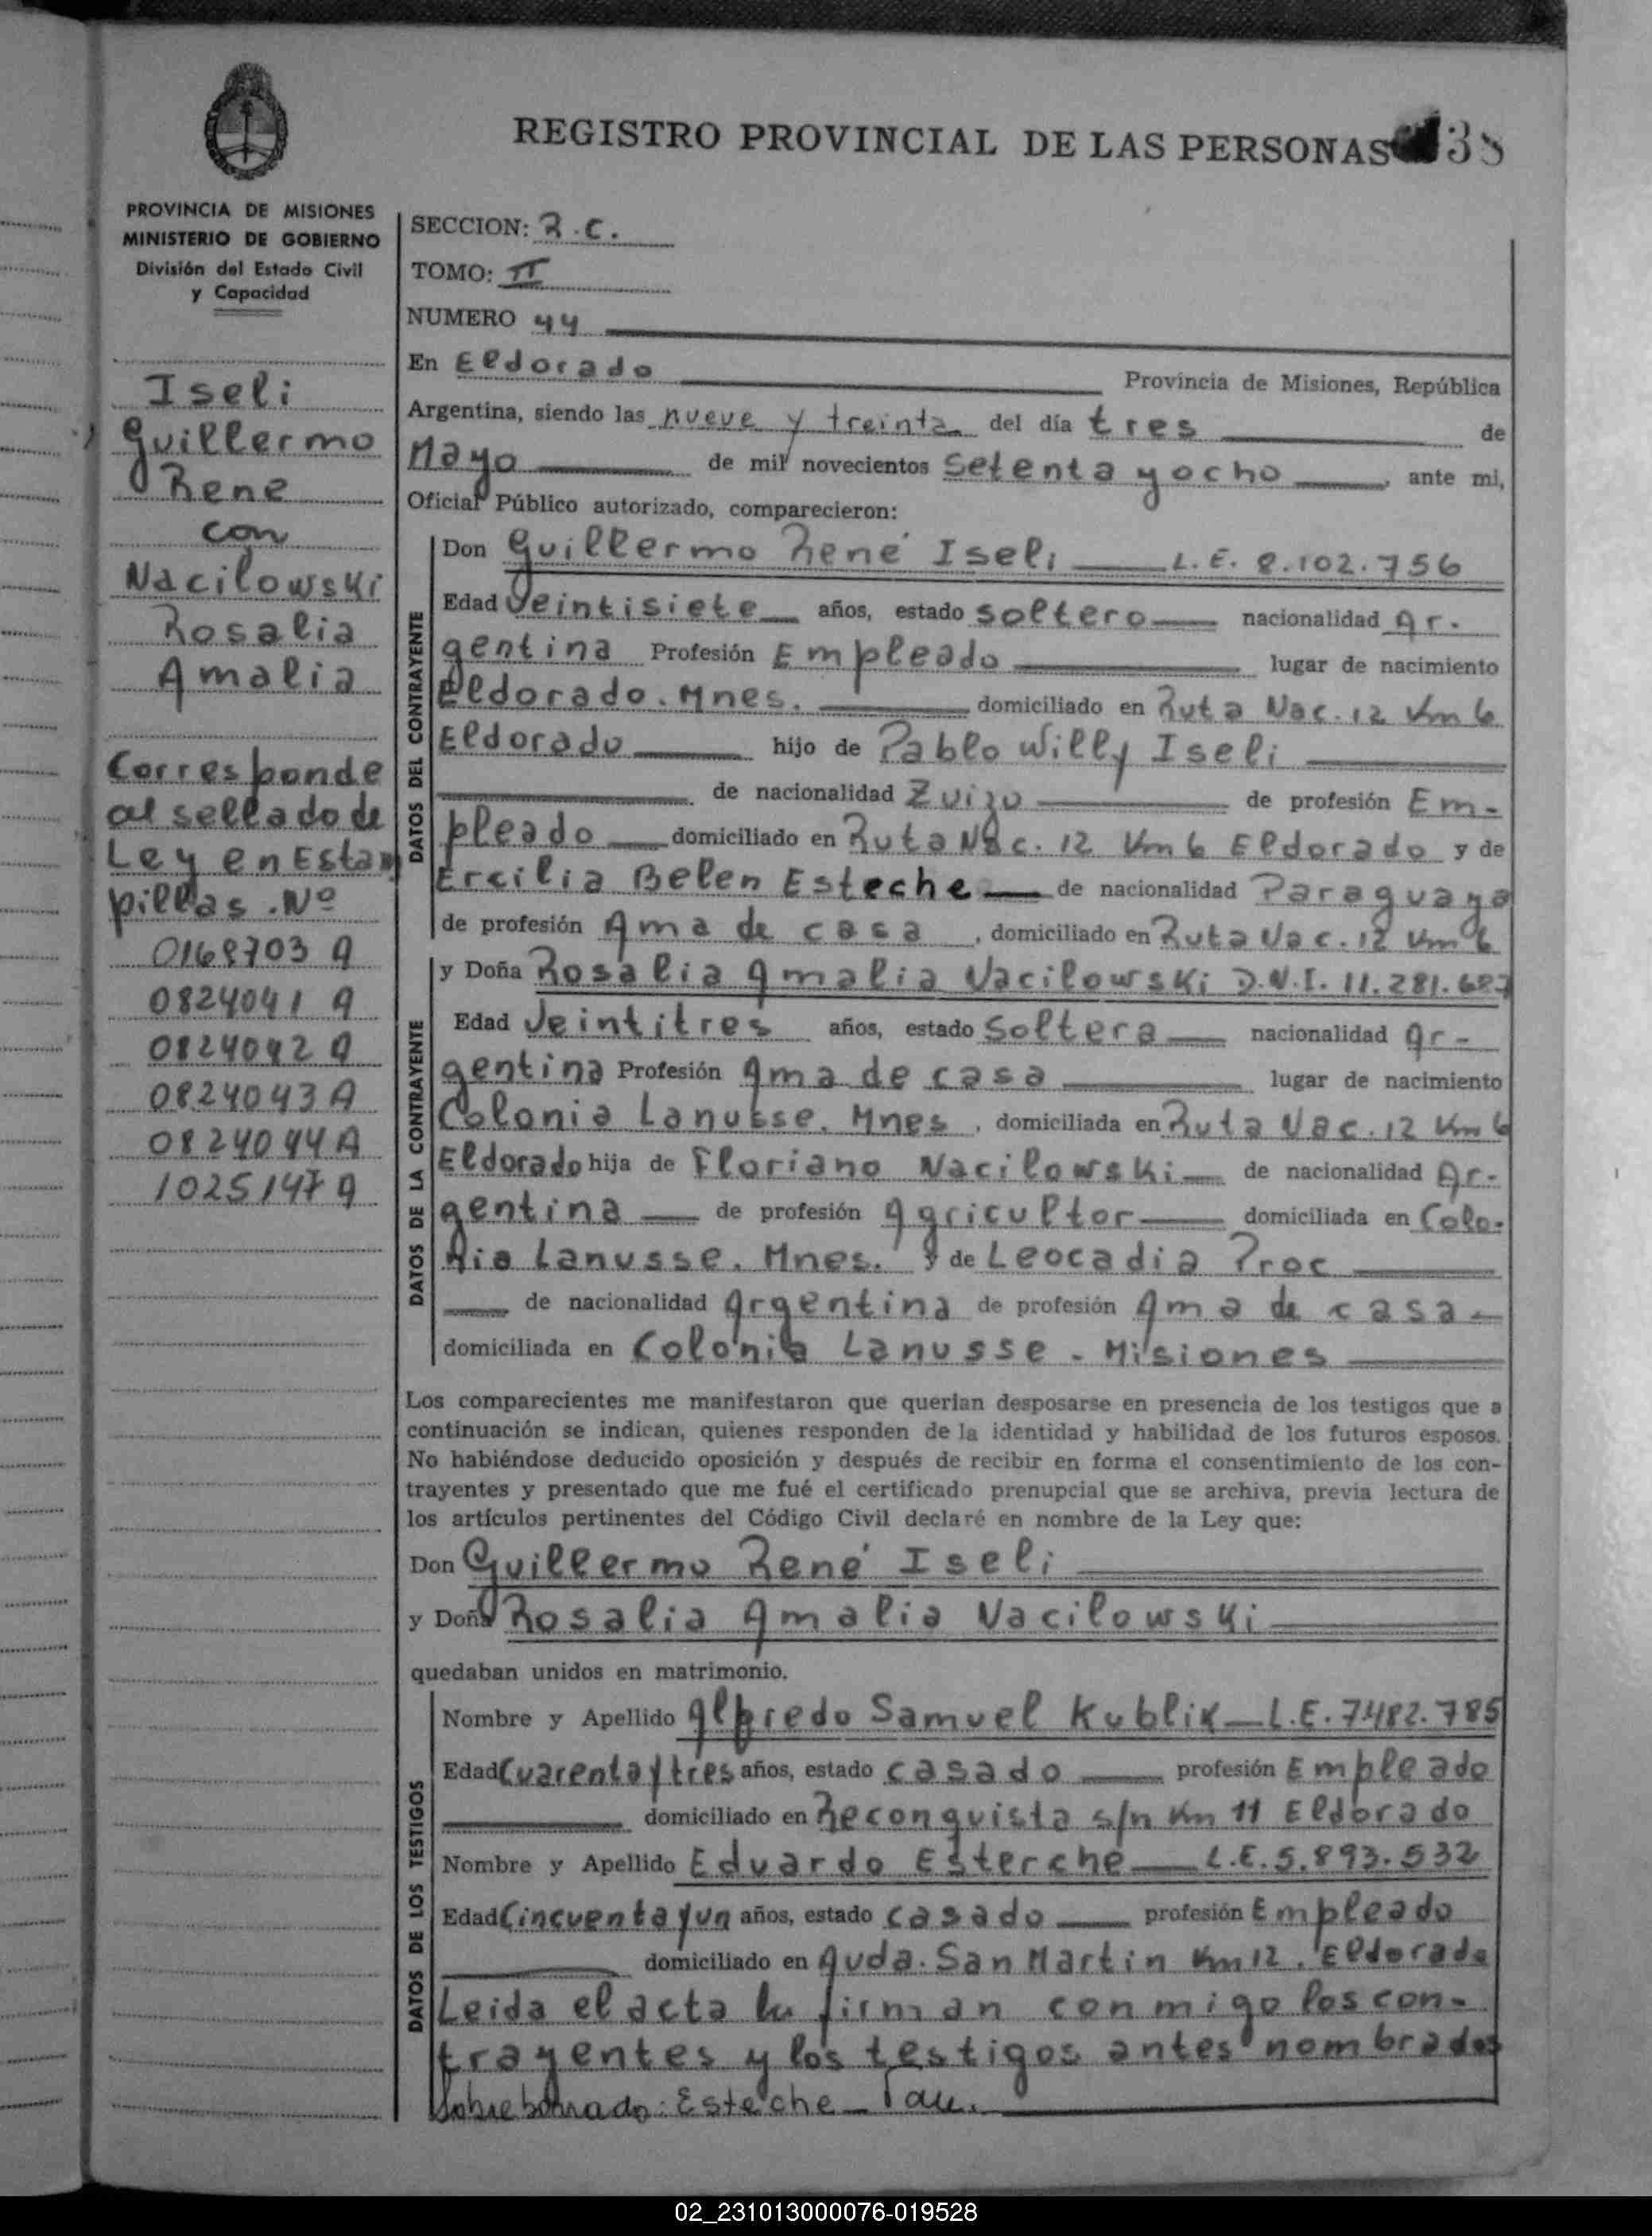 REGISTRO PROVINCIAL DE LAS PERSONAS 38
PROVINCIA DE MISIONES
MINISTERIO DE GOBIERNO
División del Estado Civil
y Capacidad
Iseli
Guillermo
Rene
con
Nacilowski
Rosalia
Amalia
Corresponde
al sellado de
Ley en Estam
pillas. Nº
0168703 A
0824041 A
0824042 A
0824043 A
0824044 A
1025147 A
SECCION: R.C.
TOMO: II
NUMERO 44
En Eldorado Provincia de Misiones, República
Argentina, siendo las nueve y treinta del día tres de
Mayo de mil novecientos Setenta y ocho, ante mi,
Oficial Público autorizado, comparecieron:
DATOS DEL CONTRAYENTE
Don Guillermo René Iseli L.E. 8.102.756
Edad Veintisiete años, estado Soltero nacionalidad Ar.
gentina Profesión Empleado lugar de nacimiento
Eldorado. Mnes. domiciliado en Ruta Nac. 12 Km 6
Eldorado hijo de Pablo Willy Iseli
de nacionalidad Zuizo de profesión Em-
pleado domiciliado en Ruta Nac. 12 Km 6 Eldorado y de
Ercilia Belen Esteche de nacionalidad Paraguaya
de profesión Ama de casa, domiciliado en Ruta Nac. 12 Km 6
DATOS DE LA CONTRAYENTE
y Doña Rosalia Amalia Nacilowski D.N.I. 11.281.687
Edad Veintitres años, estado Soltera nacionalidad Ar-
gentina Profesión Ama de casa lugar de nacimiento
Colonia Lanusse. Mnes, domiciliada en Ruta Nac. 12 Km 6
Eldorado hija de Floriano Nacilowski de nacionalidad Ar-
gentina de profesión Agricultor domiciliada en Colo-
nia Lanusse. Mnes. y de Leocadia Proc
de nacionalidad Argentina de profesión Ama de casa
domiciliada en Colonia Lanusse - Misiones
Los comparecientes me manifestaron que querían desposarse en presencia de los testigos que a
continuación se indican, quienes responden de la identidad y habilidad de los futuros esposos.
No habiéndose deducido oposición y después de recibir en forma el consentimiento de los con-
trayentes y presentado que me fué el certificado prenupcial que se archiva, previa lectura de
los artículos pertinentes del Código Civil declaré en nombre de la Ley que:
Don Guillermo René Iseli
y Doña Rosalia Amalia Nacilowski
quedaban unidos en matrimonio.
DATOS DE LOS TESTIGOS
Nombre y Apellido Alfredo Samuel Kublik L.E. 7.482.785
Edad Cuarenta y tres años, estado casado profesión Empleado
domiciliado en Reconquista s/n Km 11 Eldorado
Nombre y Apellido Eduardo Esterche L.E. 5.893.532
Edad Cincuenta y un años, estado casado profesión Empleado
domiciliado en Avda. San Martin Km 12. Eldorado
Leida el acta la firman conmigo los con-
trayentes y los testigos antes nombrados
Sobreborrado: Esteche
02_231013000076-019528